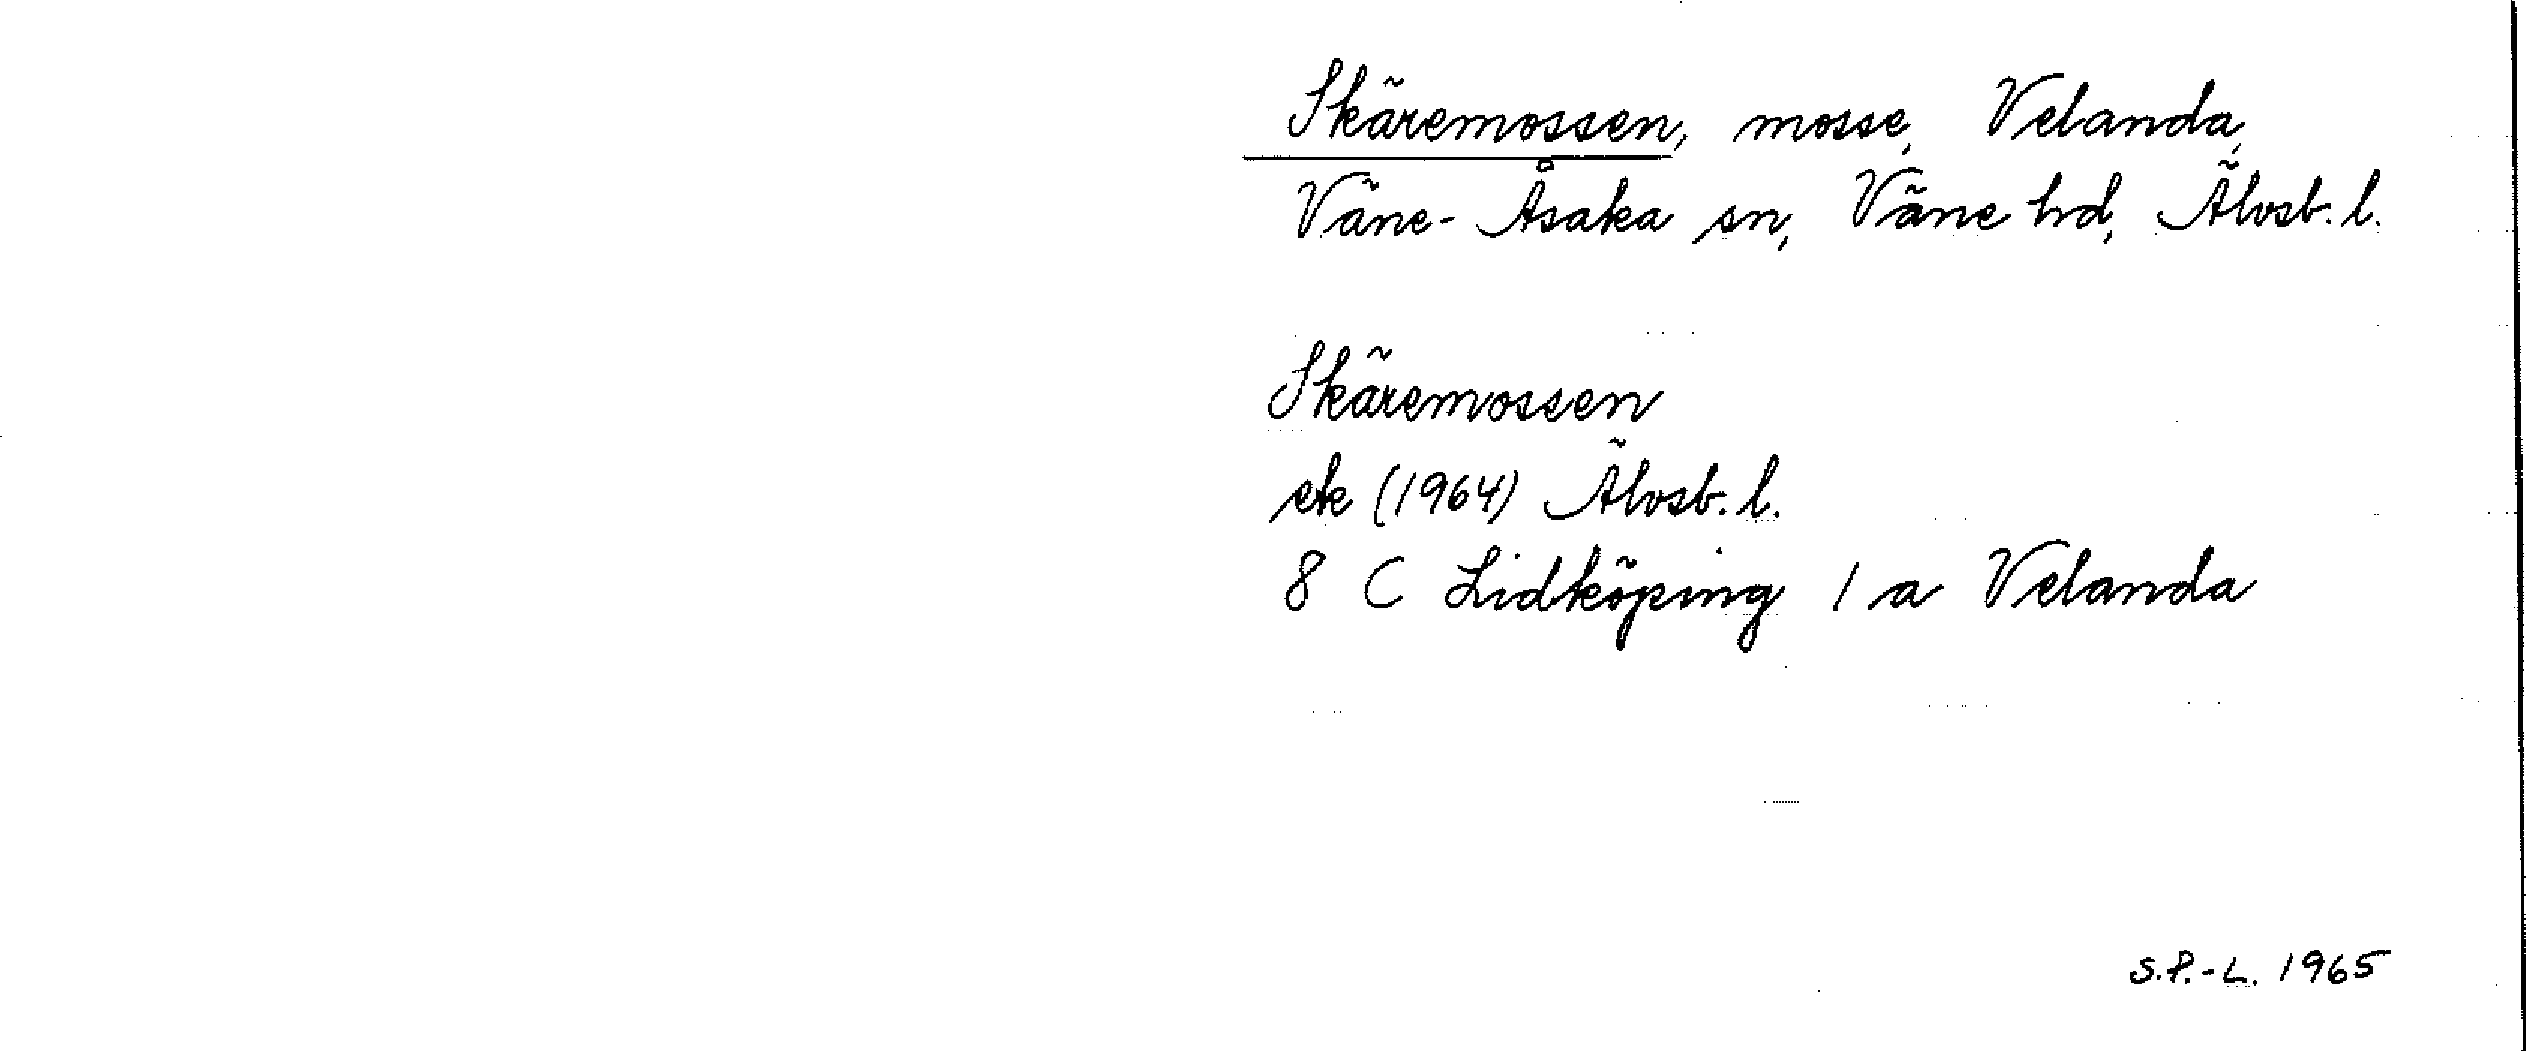 Skäremossen, mosse, Velanda,
Väne-Åsaka sn, Väne hd, Älvsb. l.
Skäremossen
ek (1964) Älvsb. l.
8 C Lidköping 1 a Velanda
S.P.-L. 1965